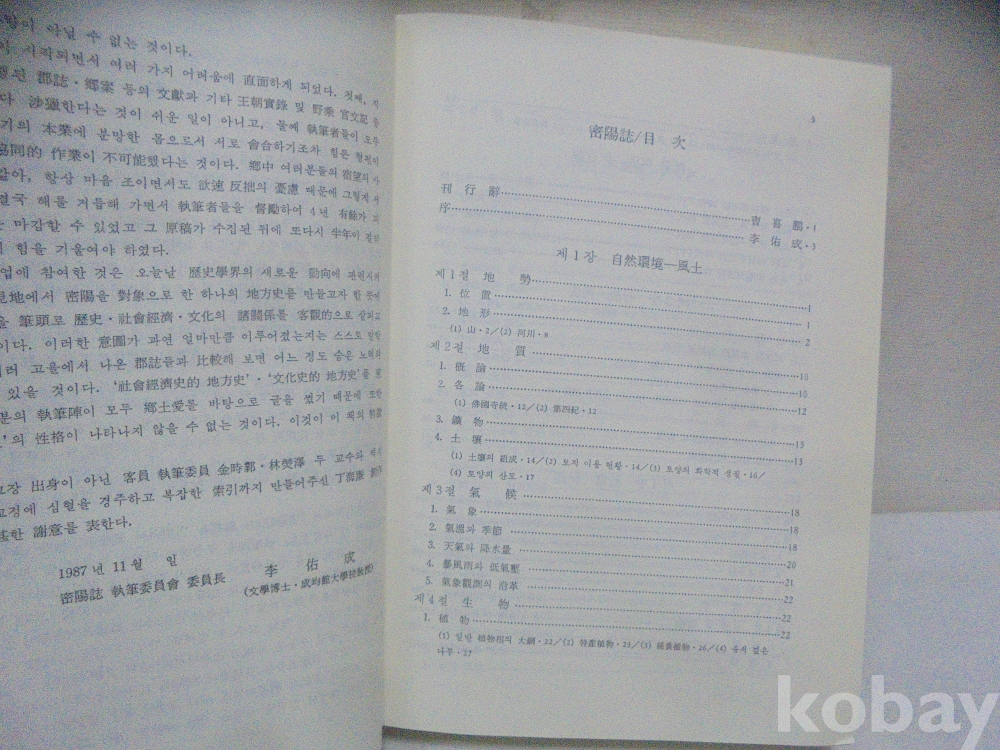 아닐 수 없는 것이다.
시작되면서 여러 가지 어려움에 直面하게 되었다. 첫째,
郡誌・鄕案 등의 文獻과 기타 王朝實錄 및 野乘 官文記
涉獵한다는 것이 쉬운 일이 아니고, 둘째 執筆者들이 모두
本業에 분망한 몸으로서 서로 會合하기조차 힘든 형편이
協同的 作業이 不可能했다는 것이다. 鄕中 여러분들의 宿望의
항상 마음 조이면서도 欲速 反拙의 憂慮 때문에 그렇게
결국 해를 거듭해 가면서 執筆者들을 督勵하여 4년 有餘가
마감할 수 있었고 그 原稿가 수집된 뒤에 또다시 半年이
힘을 기울여야 하였다.
참여한 것은 오늘날 歷史學界의 새로운 動向에 관련시켜
見地에서 密陽을 對象으로 한 하나의 地方史를 만들고자 한 뜻에
筆頭로 歷史・社會經濟・文化의 諸關係를 客觀的으로 살피고
이러한 意圖가 과연 얼마만큼 이루어졌는지는 스스로
고을에서 나온 郡誌들과 比較해 보면 어느 정도 숨은 노력의
있을 것이다. ‘社會經濟史的 地方史’・‘文化史的 地方史’를
執筆陣이 모두 鄕土愛를 바탕으로 글을 썼기 때문에 또한
性格이 나타나지 않을 수 없는 것이다. 이것이 이 책의
出身이 아닌 客員 執筆委員 金時鄴・林熒澤 두 교수와
교정에 심혈을 경주하고 복잡한 索引까지 만들어주신
謝意를 表한다.
1987년 11월 일
密陽誌 執筆委員會 委員長 李 佑 成
(文學博士・成均館大學校敎授)
密陽誌/目 次
刊 行 辭 曺 喜 鵬・1
序 李 佑 成・3
제1장 自然環境―風土
제1절 地 勢 1
1. 位 置 1
2. 地 形 2
(1) 山・2/(2) 河川・9
제2절 地 質 10
1. 槪 論 10
2. 各 論 12
(1) 佛國寺統・12/(2) 第四紀・12
3. 鑛 物 13
4. 土 壤 13
(1) 土壤의 組成・14/(2) 토지 이용 현황・14/(3) 토양의 화학적 성질・16/
(4) 토양의 산도・17
제3절 氣 候 18
1. 氣 象 18
2. 氣溫과 季節 18
3. 天氣와 降水量 20
4. 暴風雨와 低氣壓 21
5. 氣象觀測의 沿革 22
제4절 生 物 22
1. 植 物 22
(1) 일반 植物相의 大綱・22/(2) 特産植物・23/(3) 稀貴植物・26/(4) 유서 깊은
나무・27
kobay